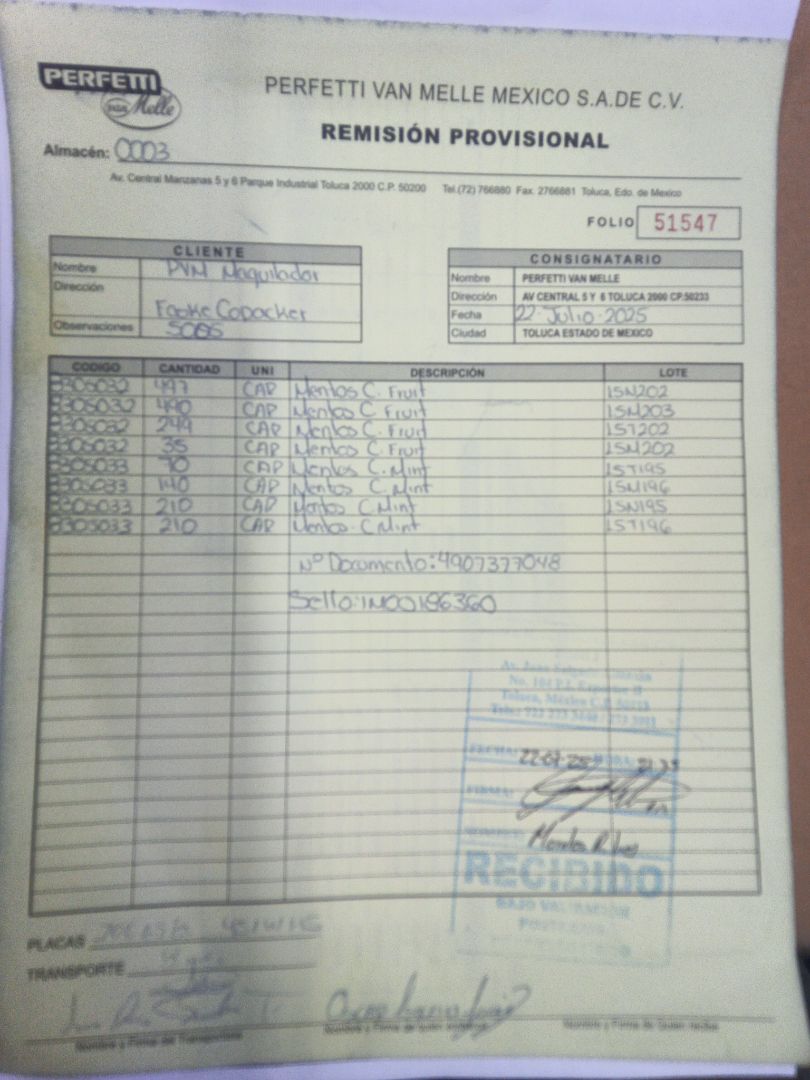 PERFETTI
van Melle
PERFETTI VAN MELLE MEXICO S.A.DE C.V.
REMISIÓN PROVISIONAL
Almacén: 0003
Av. Central Manzanas 5 y 6 Parque Industrial Toluca 2000 C.P. 50200 Tel.(72) 766880 Fax. 2766881 Toluca, Edo. de Mexico
FOLIO 51547
CLIENTE
Nombre PVM Maquilador
Dirección
Fooke Copacker
Observaciones
CONSIGNATARIO
Nombre PERFETTI VAN MELLE
Dirección AV CENTRAL 5 Y 6 TOLUCA 2000 CP.50233
Fecha 22 Julio 2025
Ciudad TOLUCA ESTADO DE MEXICO
CODIGO CANTIDAD UNI DESCRIPCIÓN LOTE
3305032 497 CAP Mentos C. Fruit 15N202
3305032 490 CAP Mentos C. Fruit 15M203
3305032 249 CAP Mentos C. Fruit 15T202
3305032 35 CAP Mentos C. Fruit 15M202
3305033 70 CAP Mentos C. Mint 15T195
3305033 140 CAP Mentos C. Mint 15M196
3305033 210 CAP Mentos C. Mint 15N195
3305033 210 CAP Mentos C. Mint 15T196
Nº Documento: 4907377048
Sello: 1M00186360
No. 104 P.I. Exportec II
Toluca, México C.P.
FECHA: 22-07-25 HORA: 21:35
FIRMA:
Morales
RECIBIDO
BAJO VALIDACIÓN
POSTERIOR
PLACAS
TRANSPORTE
Nombre y Firma del Transportista Nombre y Firma de Quien Nombre y Firma de Quien Recibe